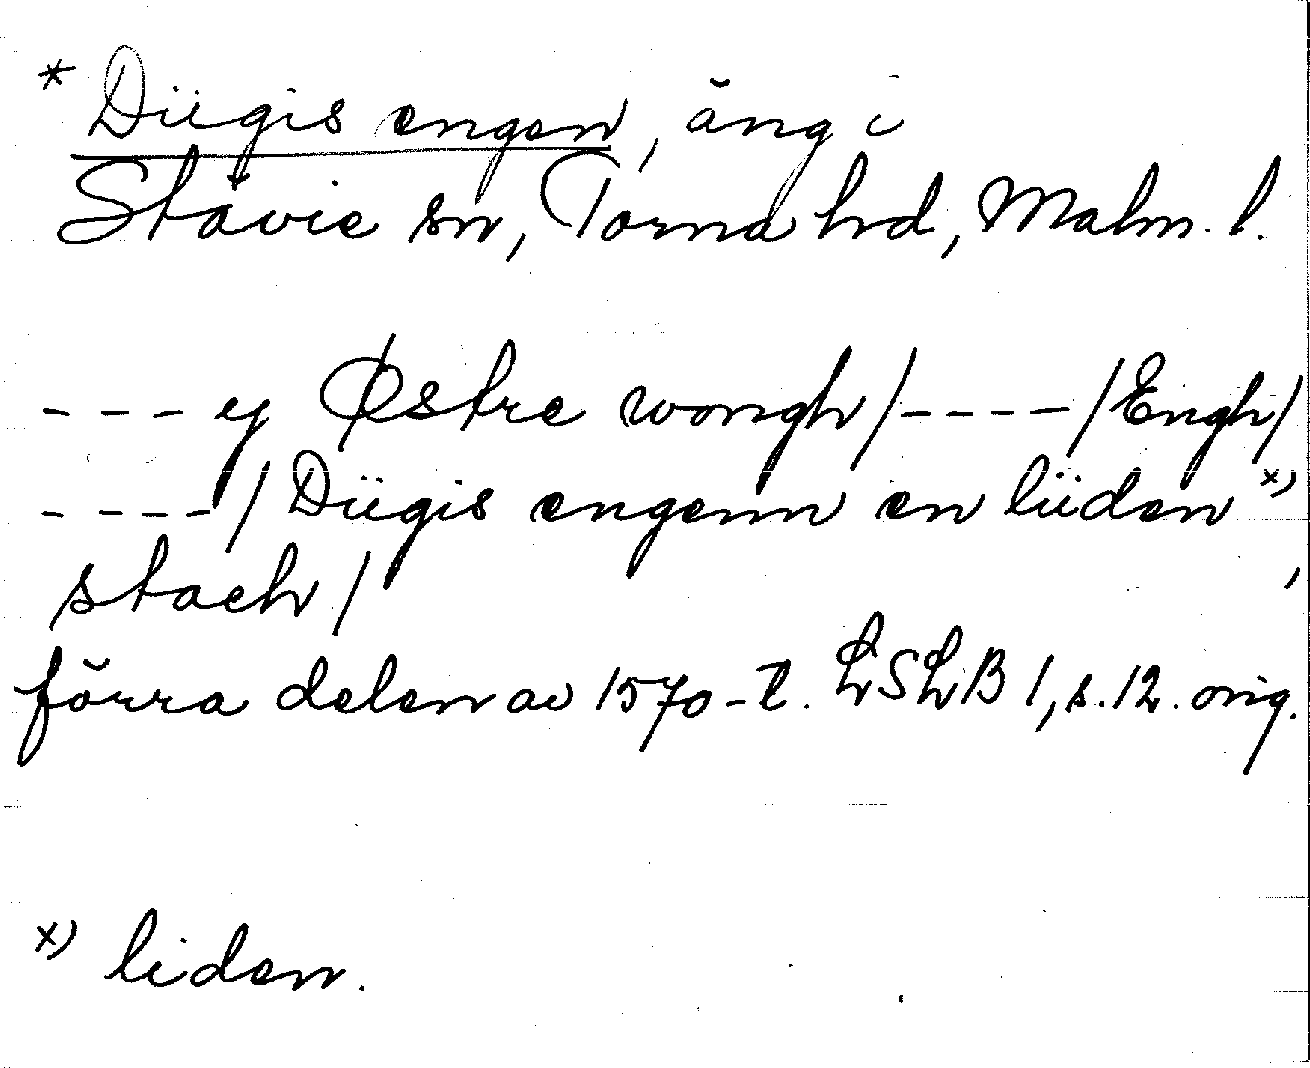 * Diigis engen, äng i
Stävie sn, Torna hd, Malm. l.
- - - y Østre wongh /- - - - /Engh/
- - - -/ Diigis engenn en liiden x)
stach /
förra delen av 1570-t. LSLB 1, s. 12. orig.
x) liden.